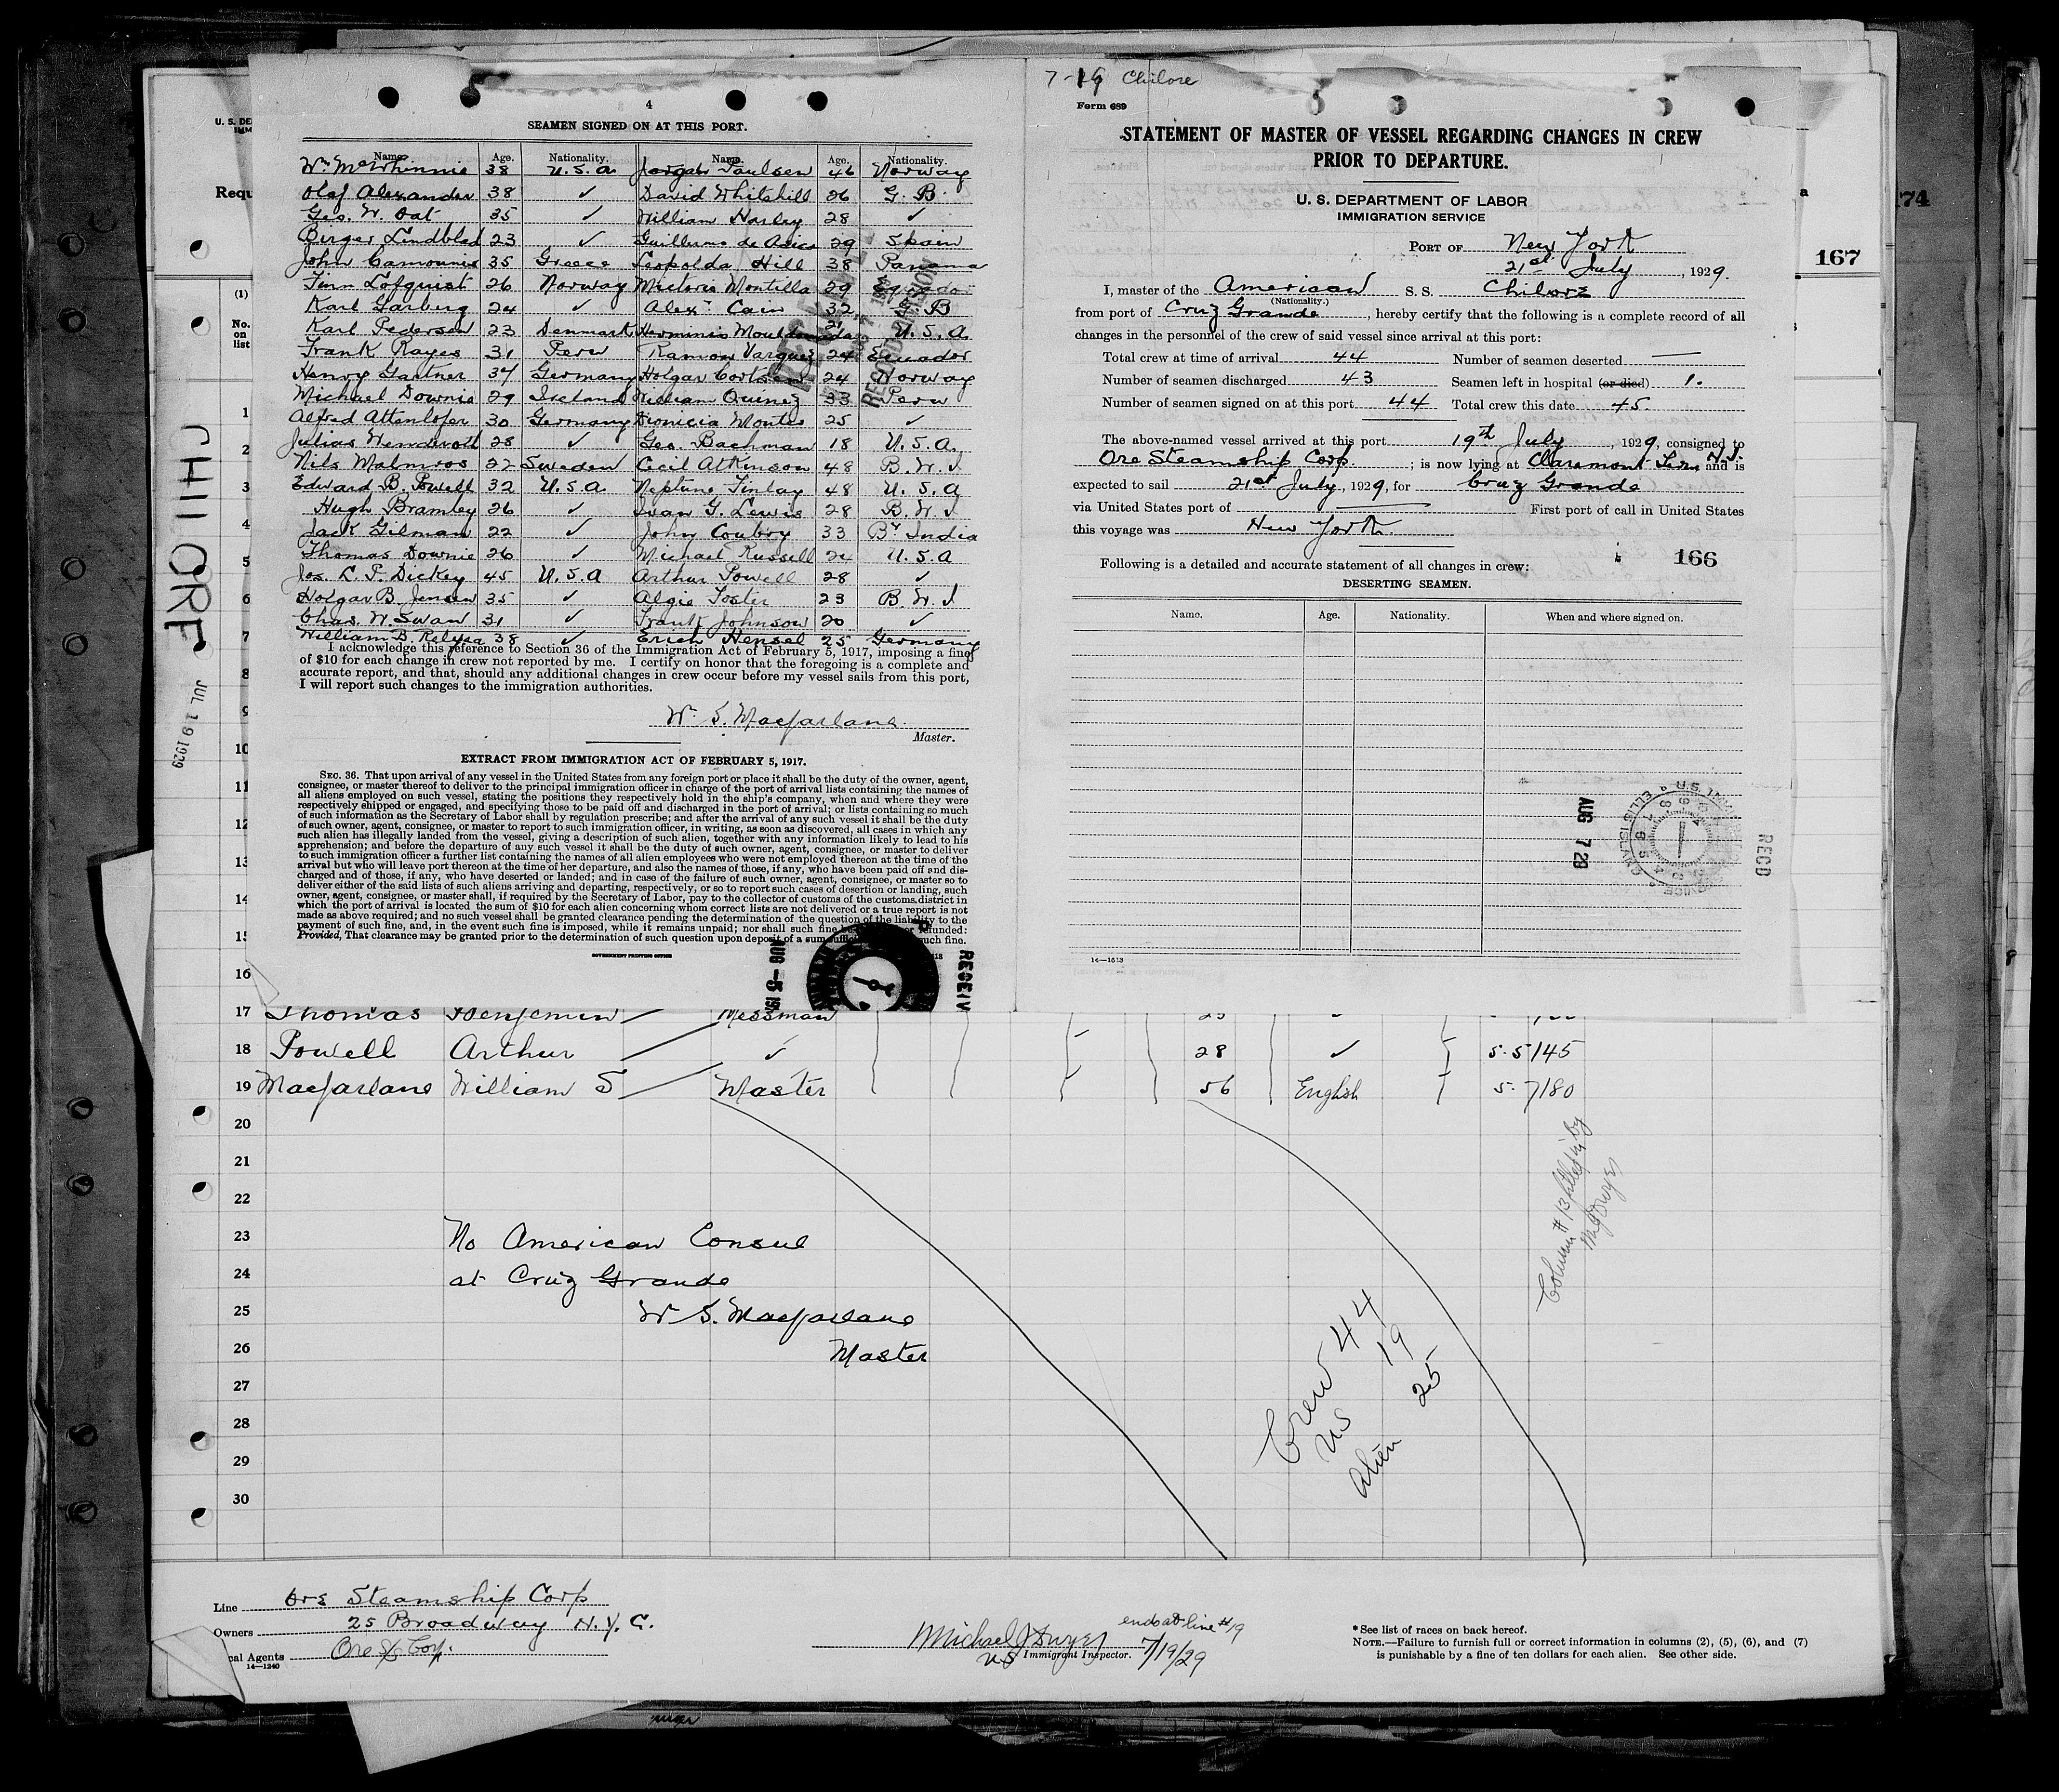 4
SEAMEN SIGNED ON AT THIS PORT.
Name. Age. Nationality. Name. Age. Nationality.
Wm McWhinnie 38 U.S.A. Jorgen Paulsen 46 Norway
Olaf Alexander 38 ✓ David Whitehill 26 G. B.
Geo. W. Oat 35 ✓ William Harley 28 ✓
Birger Lindblad 23 ✓ Guillermo de 29 Spain
John Camounis 35 Greece Leopolda Hill 38 Panama
Finn Lofquist 26 Norway Montilla 29
Karl Garberg 24 ✓ Alexr Cain 32 G. B
Karl Pedersen 23 Denmark Herminis U.S.A
Frank Rayes 31 Peru Ramon Varquez 24 Ecuador
Henry Gartner 37 Germany Holgar 24 Norway
Michael Downie 29 Ireland William Quinez 33 Peru
Alfred Attenlofer 30 Germany Dionicia Montes 25 ✓
Julias 28 ✓ Geo. Bachman 18 U.S.A.
Nils Malmros 22 Sweden Cecil Atkinson 48 B.W.I
Edward B. Powell 32 U.S.A. Neptune Finlay 48 U.S.A
Hugh Bramley 26 ✓ Ivan G. Lewis 28 B.W.I
Jack Gilman 22 ✓ John Conboy 33 Br India
Thomas Downie 26 ✓ Michael Russell 24 U.S.A
Jos. L. P. Dickey 45 U.S.A Arthur Powell 28 ✓
Holgar B. Jensen 35 ✓ Algie Foster 23 B.W.I
Chas. N. Swan 31 ✓ Frank Johnson 20 ✓
William B. Relyea 38 ✓ Erich Hensel 25 Germany
I acknowledge this reference to Section 36 of the Immigration Act of February 5, 1917, imposing a fine
of $10 for each change in crew not reported by me. I certify on honor that the foregoing is a complete and
accurate report, and that, should any additional changes in crew occur before my vessel sails from this port,
I will report such changes to the immigration authorities.
W. S. Macfarlane.
Master.
EXTRACT FROM IMMIGRATION ACT OF FEBRUARY 5, 1917.
SEC. 36. That upon arrival of any vessel in the United States from any foreign port or place it shall be the duty of the owner, agent,
consignee, or master thereof to deliver to the principal immigration officer in charge of the port of arrival lists containing the names of
all aliens employed on such vessel, stating the positions they respectively hold in the ship's company, when and where they were
respectively shipped or engaged, and specifying those to be paid off and discharged in the port of arrival; or lists containing so much
of such information as the Secretary of Labor shall by regulation prescribe; and after the arrival of any such vessel it shall be the duty
of such owner, agent, consignee, or master to report to such immigration officer, in writing, as soon as discovered, all cases in which any
such alien has illegally landed from the vessel, giving a description of such alien, together with any information likely to lead to his
apprehension; and before the departure of any such vessel it shall be the duty of such owner, agent, consignee, or master to deliver
to such immigration officer a further list containing the names of all alien employees who were not employed thereon at the time of the
arrival but who will leave port thereon at the time of her departure, and also the names of those, if any, who have been paid off and dis-
charged and of those, if any, who have deserted or landed; and in case of the failure of such owner, agent, consignee, or master so to
deliver either of the said lists of such aliens arriving and departing, respectively, or so to report such cases of desertion or landing, such
owner, agent, consignee, or master shall, if required by the Secretary of Labor, pay to the collector of customs of the customs district in
which the port of arrival is located the sum of $10 for each alien concerning whom correct lists are not delivered or a true report is not
made as above required; and no such vessel shall be granted clearance pending the determination of the question of the liability to the
payment of such fine, and, in the event such fine is imposed, while it remains unpaid; nor shall such fine be or refunded:
Provided, That clearance may be granted prior to the determination of such question upon deposit of a sum such fine.
GOVERNMENT PRINTING OFFICE
AUG -5 19
RECEIV
7-19 Chilore
Form 689
STATEMENT OF MASTER OF VESSEL REGARDING CHANGES IN CREW
PRIOR TO DEPARTURE.
U. S. DEPARTMENT OF LABOR
IMMIGRATION SERVICE
PORT OF New York
21st July, 1929.
I, master of the American S. S. Chilore
(Nationality.)
from port of Cruz Grande, hereby certify that the following is a complete record of all
changes in the personnel of the crew of said vessel since arrival at this port:
Total crew at time of arrival 44 Number of seamen deserted —
Number of seamen discharged 43 Seamen left in hospital (or died) 1.
Number of seamen signed on at this port 44 Total crew this date 45.
The above-named vessel arrived at this port 19th July, 1929, consigned to
Ore Steamship Corp.; is now lying at Claremont Term N.J. and is
expected to sail 21st July, 1929, for Cruz Grande
via United States port of — First port of call in United States
this voyage was New York.
166
Following is a detailed and accurate statement of all changes in crew:
DESERTING SEAMEN.
Name. Age. Nationality. When and where signed on.
AUG 7 29
RECD
14—1613
167
174
U. S. DE
IMM
Requ
(1)
No.
on
list
1
2
3
4
5
6
7
8
9
10
11
12
13
14
15
16
CHILORE
JUL 19 1929
17 Thomas Benjemin Messman
18 Powell Arthur ✓ 28 ✓ 5.5 145
19 Macfarlane William S Master 56 English 5.7 180
20
21
22
23 No American Consul
24 at Cruz Grande
25 W S. Macfarlane
26 Master
27
28
29
30
Column #13 filled in by
MJ Dwyer
Crew 44
US 19
Alien 25
Line Ore Steamship Corp
Owners 25 Broadway N.Y.C.
cal Agents Ore S/S Corp.
14—1240
Michael J Dwyer ends at line #19
US Immigrant Inspector. 7/19/29
*See list of races on back hereof.
NOTE.—Failure to furnish full or correct information in columns (2), (5), (6), and (7)
is punishable by a fine of ten dollars for each alien. See other side.